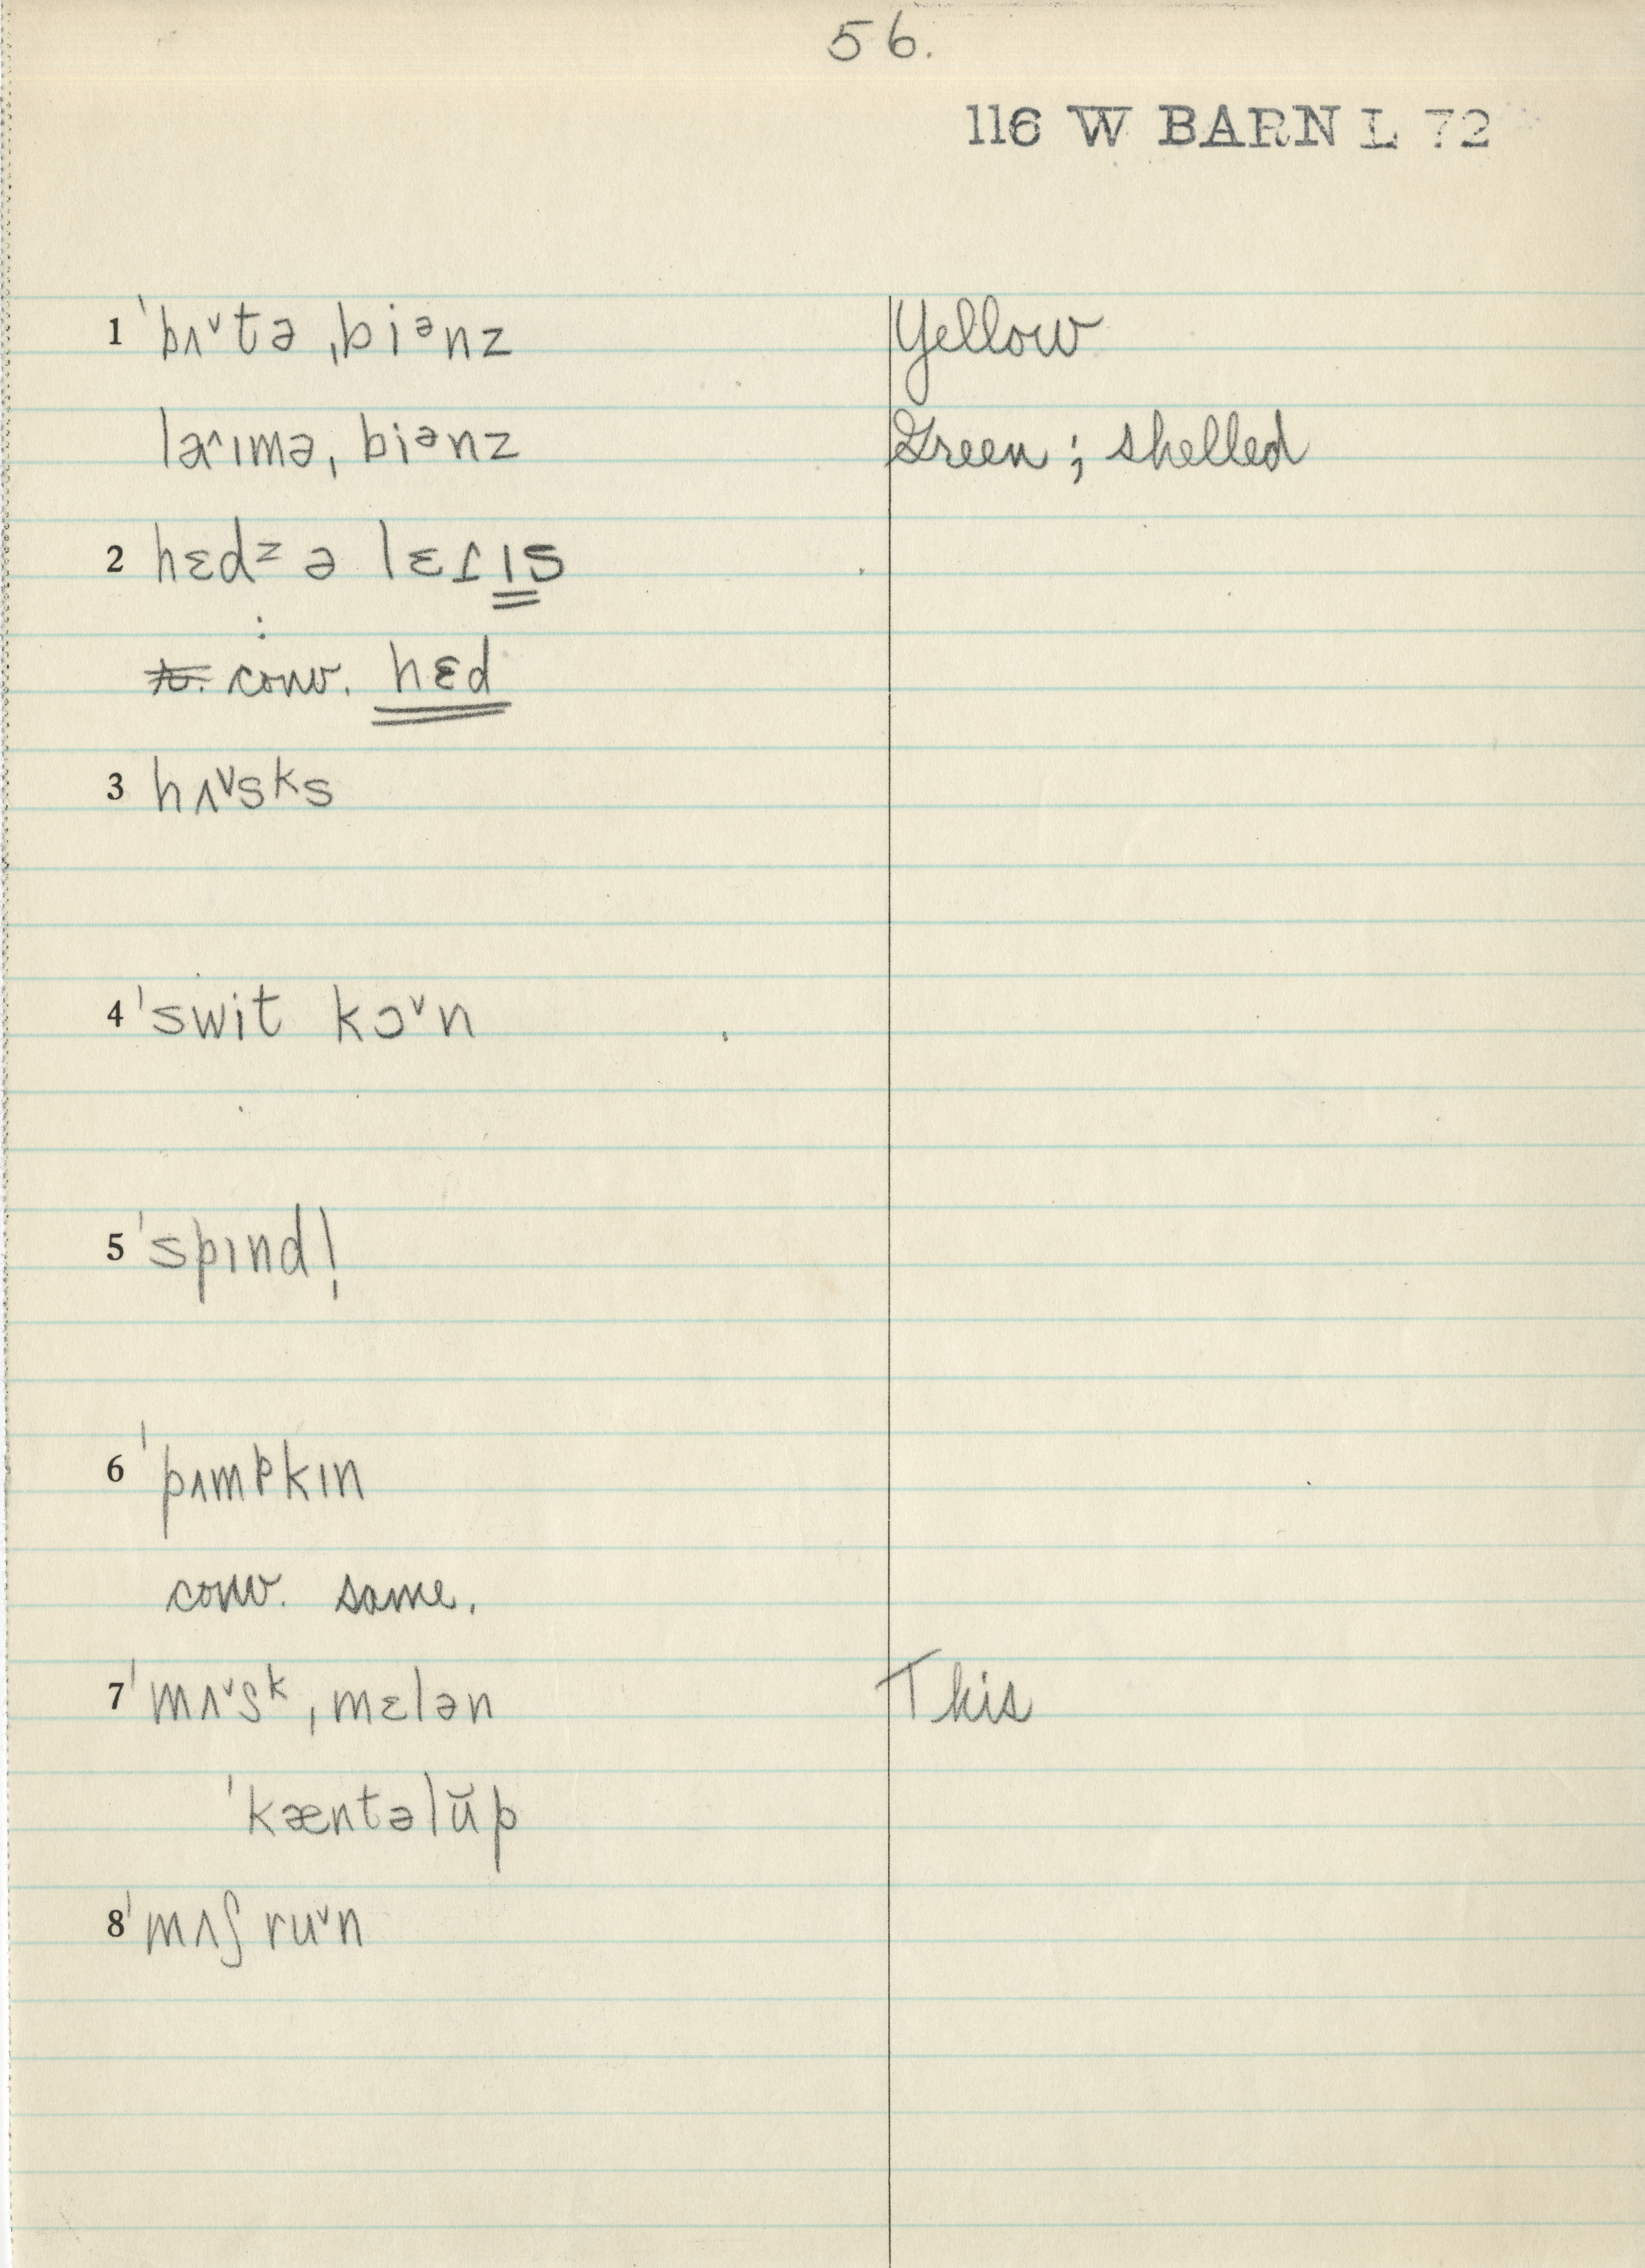 56.
116 W BARN L 72
1 ˈbʌ˅tə ˌbiᵊnz Yellow
laˈɪmə ˌbiᵊnz Green ; shelled
2 hɛdᶻ ə lɛɾɪs
:
conv. hɛd
3 hʌ˅sᵏs
4 ˈswit kɔ˅n
5 ˈspɪndȷ
6 ˈpʌmᵖkɪn
conv. same.
7 ˈmʌ˅sᵏ ˌmɛlən This
ˈkæntəlŭp
8 ˈmʌʃru˅n